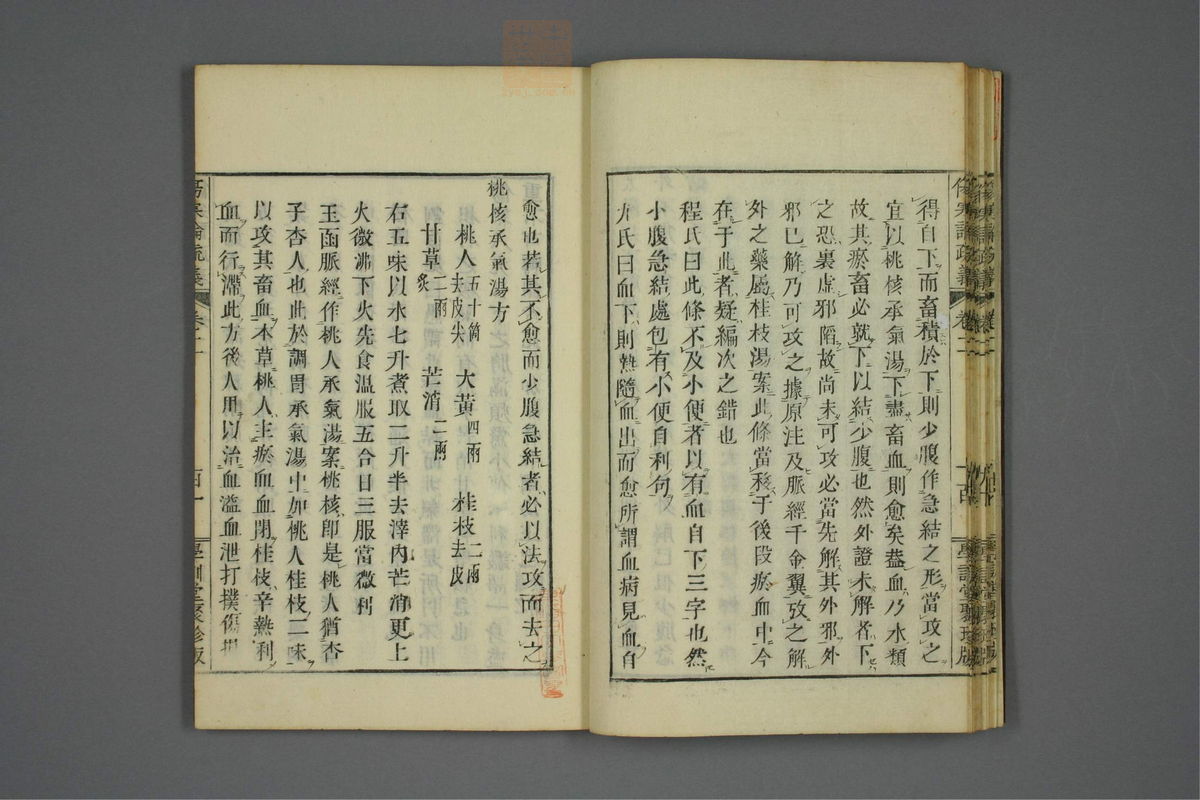 得自下而畜積於下則少腹作急結之形當攻之
宜以桃核承氣湯下盡畜血則愈矣蓋血乃水類
故其瘀畜必就下以結少腹也然外證未解者下
之恐裏虛邪陷故尚未可攻必當先解其外邪外
邪已解乃可攻之據原注及脈經千金翼攷之解
外之藥屬桂枝湯案此條當移于後段瘀血中今
在于此者疑編次之錯也
程氏曰此條不及小便者以有血自下三字也然
小腹急結處包有小便自利句
尤氏曰血下則熱隨血出而愈所謂血病見血自
愈也若其不愈而少腹急結者必以法攻而去之
桃核承氣湯方
桃人五十箇去皮尖 大黃四兩 桂枝二兩去皮
甘草二兩炙 芒消二兩
右五味以水七升煮取二升半去滓內芒消更上
火微沸下火先食溫服五合日三服當微利
玉函脈經作桃人承氣湯案桃核卽是桃人猶杏
子杏人也此於調胃承氣湯中加桃人桂枝二味
以攻其畜血本草桃人主瘀血血閉桂枝辛熱利
血而行滯此方後人用以治血溢血泄打撲傷損
傷寒論疏義 卷二
學訓堂聚珍版